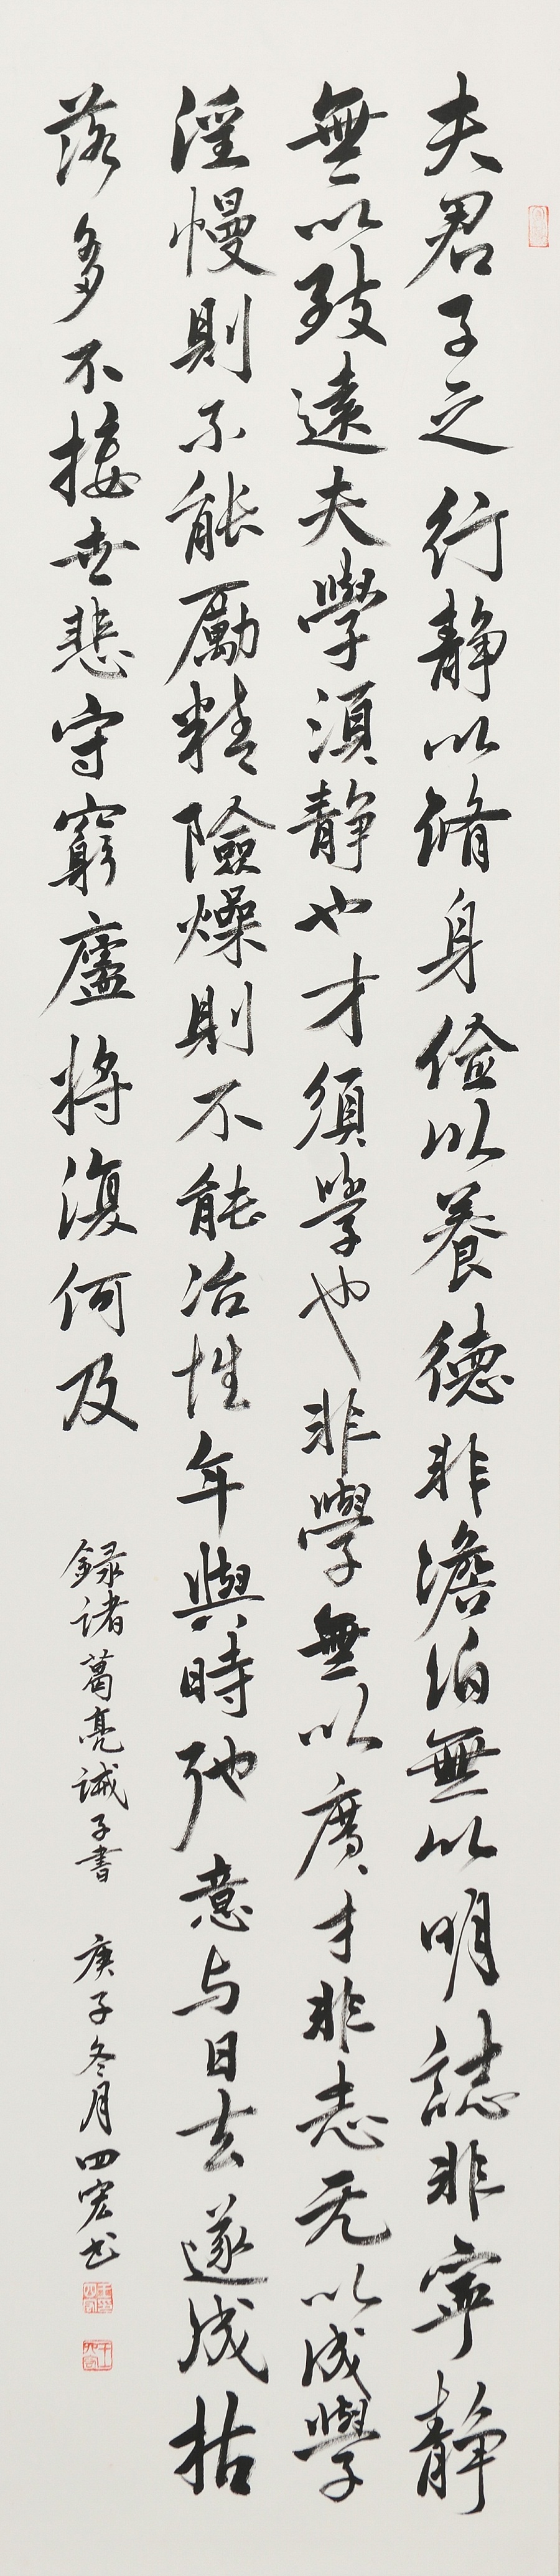 夫君子之行静以脩身儉以養德非澹泊無以明誌非寧靜
無以致遠夫學須静也才須學也非學無以廣才非志无以成學
淫慢則不能勵精險燥則不能冶性年與時弛意与日去遂成枯
落多不接世悲守窮廬將復何及
録诸葛亮誡子書 庚子冬月四宏书